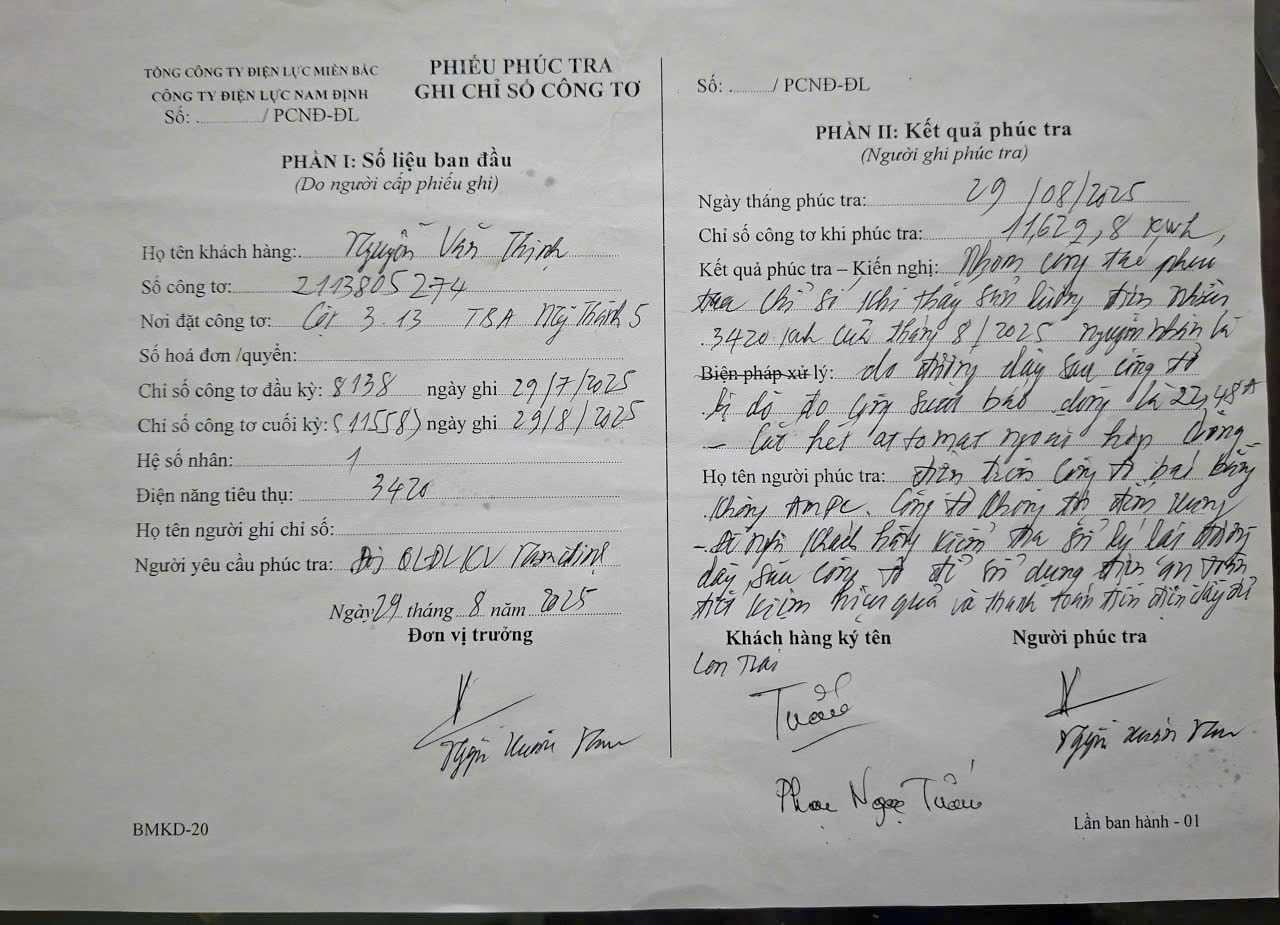 TỔNG CÔNG TY ĐIỆN LỰC MIỀN BẮC
CÔNG TY ĐIỆN LỰC NAM ĐỊNH
Số: ............/ PCNĐ-ĐL
PHIẾU PHÚC TRA
GHI CHỈ SỐ CÔNG TƠ
PHẦN I: Số liệu ban đầu
(Do người cấp phiếu ghi)
Họ tên khách hàng: Nguyễn Văn Thịnh
Số công tơ: 2113805274
Nơi đặt công tơ: Cột 3.13 TBA Mỹ Thành 5
Số hoá đơn /quyển:
Chỉ số công tơ đầu kỳ: 8138 ngày ghi 29/7/2025
Chỉ số công tơ cuối kỳ: (11558) ngày ghi 29/8/2025
Hệ số nhân: 1
Điện năng tiêu thụ: 3420
Họ tên người ghi chỉ số:
Người yêu cầu phúc tra: Đội QLĐLKV Nam định
Ngày 29 tháng 8 năm 2025
Đơn vị trưởng
Xuân
BMKD-20
Số: ........../ PCNĐ-ĐL
PHẦN II: Kết quả phúc tra
(Người ghi phúc tra)
Ngày tháng phúc tra: 29/08/2025
Chỉ số công tơ khi phúc tra: 11,629,8 kwh,
Kết quả phúc tra – Kiến nghị: Nhóm công tác phúc
tra chỉ số khi thấy sản lượng điện nhiều
3420 kwh của tháng 8/2025 nguyên nhân là
Biện pháp xử lý: do đường dây sau công tơ
bị dò đo công suất báo dòng là 22,48A
- Cắt hết attomat ngoài hộp dòng
Họ tên người phúc tra: điện trên công tơ báo bằng
không AmPe. Công tơ không đếm xung
- Đề nghị khách hàng kiểm tra xử lý lại đường
dây sau công tơ để sử dụng điện an toàn
tiết kiệm hiệu quả và thanh toán tiền điện đầy đủ
Khách hàng ký tên
Người phúc tra
Con Trai
Tuấn
Xuân
Phạm Ngọc Tuấn
Lần ban hành - 01